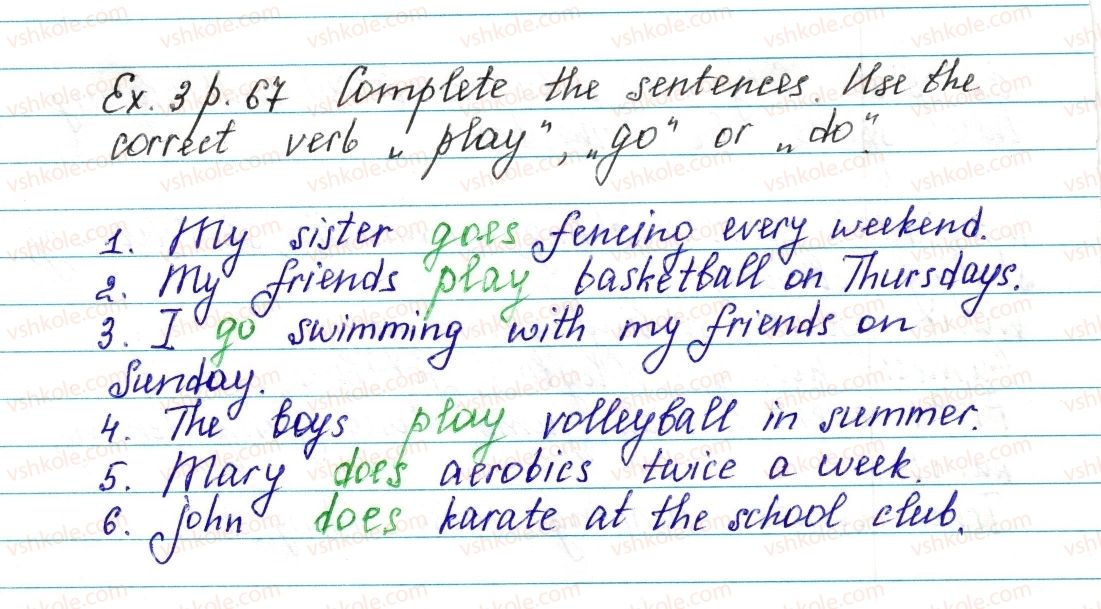 Ex. 3 p. 67 Complete the sentences. Use the
correct verb „play“, „go“ or „do“.
1. My sister goes fencing every weekend.
2. My friends play basketball on Thursdays.
3. I go swimming with my friends on
Sunday.
4. The boys play volleyball in summer.
5. Mary does aerobics twice a week.
6. John does karate at the school club.